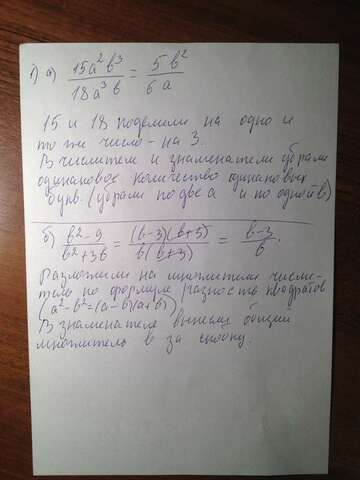 1) а) 15a²b³ / 18a³b = 5b² / 6a
15 и 18 поделили на одно и
то же число - на 3.
В числителе и знаменателе убрали
одинаковое количество одинаковых
букв. (убрали по две a и по одной b)
б) b²-9 / b²+3b = (b-3)(b+3) / b(b+3) = b-3 / b.
Разложили на множители числи-
тель по формуле разность квадратов
(a²-b²=(a-b)(a+b))
В знаменателе вынесли общий
множитель b за скобку.